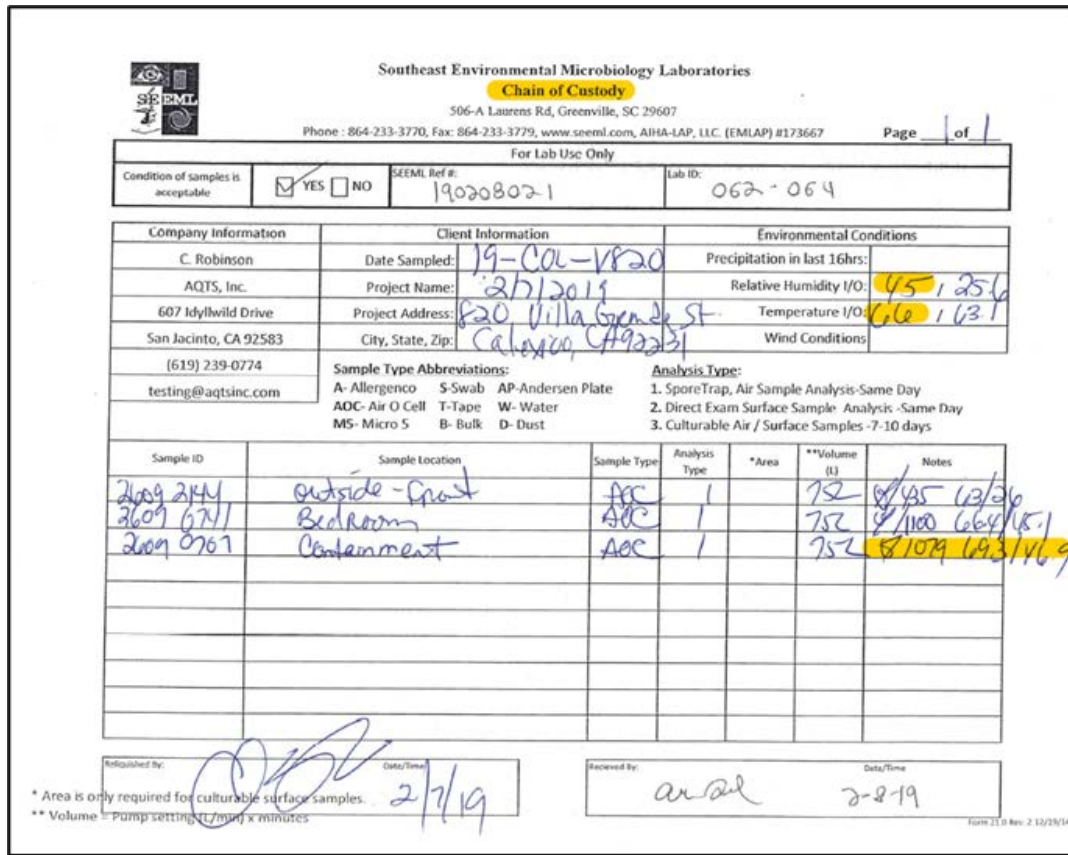 SEEML
Southeast Environmental Microbiology Laboratories
Chain of Custody
506-A Laurens Rd, Greenville, SC 29607
Phone : 864-233-3770, Fax: 864-233-3779, www.seeml.com, AIHA-LAP, LLC. (EMLAP) #173667 Page 1 of 1
For Lab Use Only
Condition of samples is acceptable YES NO SEEML Ref #: 190208021 Lab ID: 062-064
Company Information Client Information Environmental Conditions
C. Robinson Date Sampled: 19-COL-V820 Precipitation in last 16hrs:
AQTS, Inc. Project Name: 2/7/2019 Relative Humidity I/O: 45 / 25.6
607 Idyllwild Drive Project Address: 820 Villa Grande St. Temperature I/O: 66 / 63.1
San Jacinto, CA 92583 City, State, Zip: Calexico, CA 92231 Wind Conditions
(619) 239-0774 Sample Type Abbreviations: Analysis Type:
testing@aqtsinc.com A- Allergenco S-Swab AP-Andersen Plate 1. SporeTrap, Air Sample Analysis-Same Day
AOC- Air O Cell T-Tape W- Water 2. Direct Exam Surface Sample Analysis -Same Day
M5- Micro 5 B- Bulk D- Dust 3. Culturable Air / Surface Samples -7-10 days
Sample ID Sample Location Sample Type Analysis Type *Area **Volume (L) Notes
2609 2144 outside-Front AOC 1 752 /435 63/26
2609 6741 BedRoom AOC 1 752 /1100 66.4/45.1
2609 0767 Containment AOC 1 752 8/1079 69.3/46.9
Reliquished By: Date/Time Recieved By: Date/Time
2/7/19 2-8-19
* Area is only required for culturable surface samples.
** Volume = Pump setting (L/min) x minutes
Form 21.0 Rev: 2 12/19/14